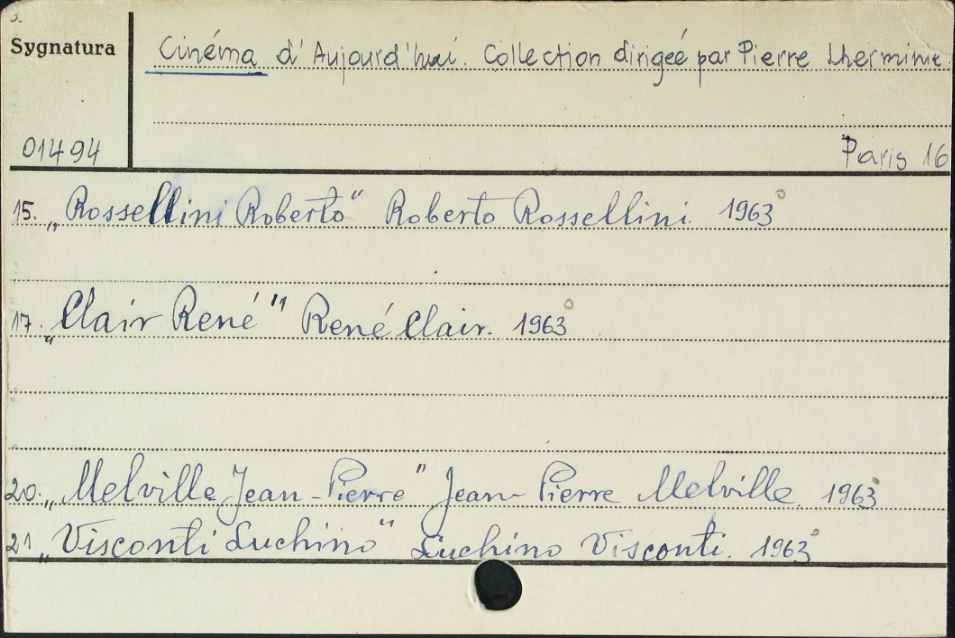 Sygnatura
Cinéma d'Aujourd'hui. Collection dirigée par Pierre Lherminie.
01494
Paris 16
15. „Rossellini Roberto" Roberto Rossellini. 1963°
17. „Clair René" René Clair. 1963°
20. „Melville Jean-Pierre" Jean-Pierre Melville. 1963°
21 „Visconti Luchino" Luchino Visconti. 1963°